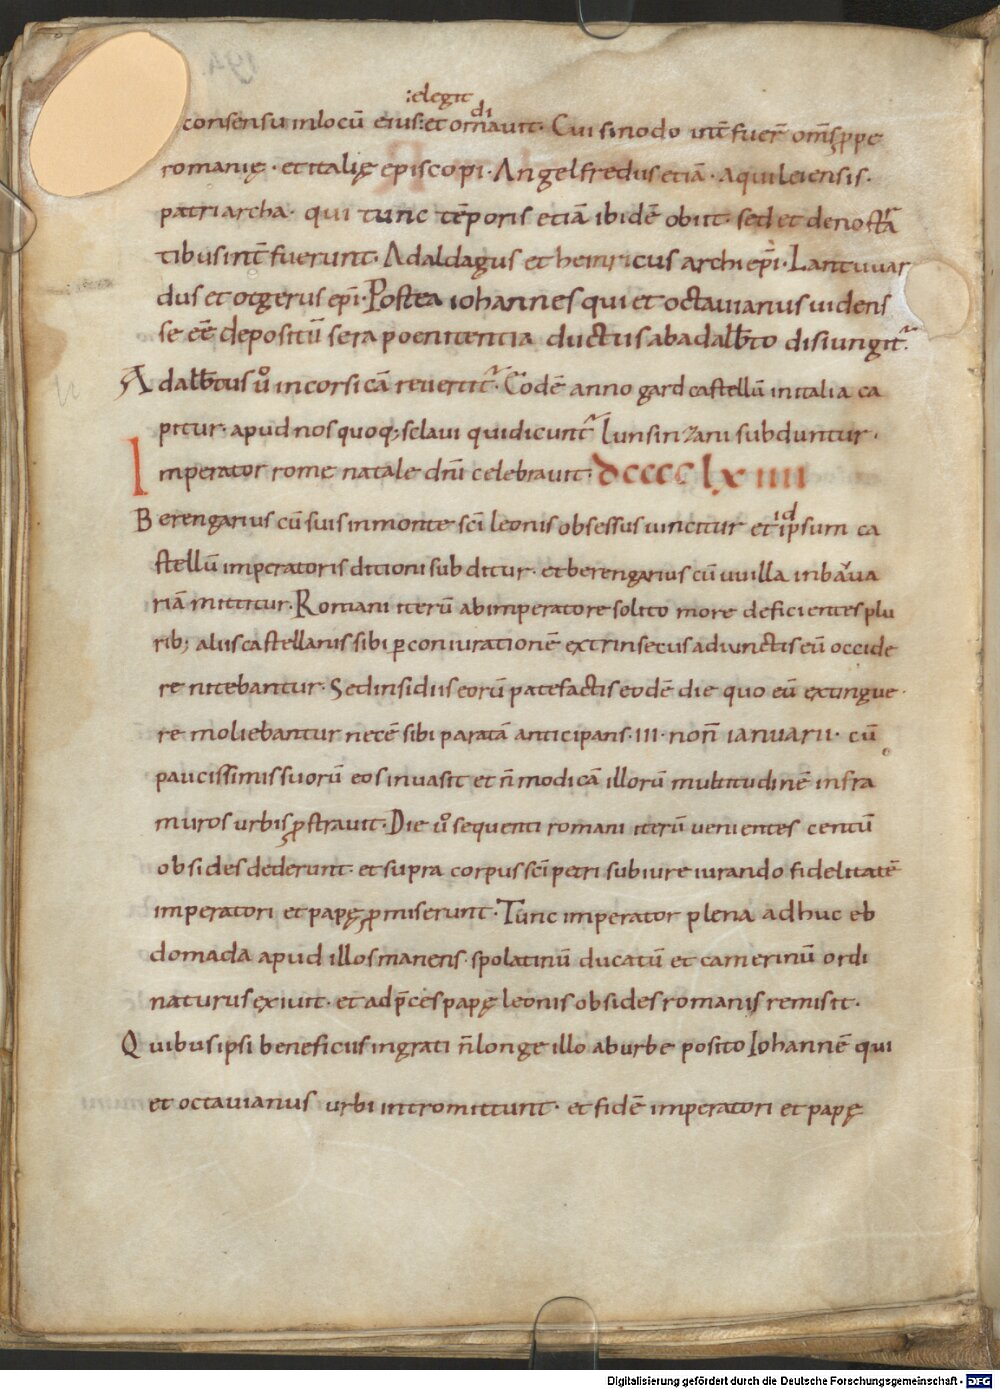 :elegit
consensu inlocū eius:et ordinauit. Cui sinodo int̄fuer̄ om̄s prope
romanię · et italię episcopi · Angelfredus etiā · aquileiensis ·
patriarcha · qui tunc tēporis etiā ibidē obiit · sed et de nostra
tibus int̄fuerunt · Adaldagus et heinricus archiep̄i · Lantuuar
dus et otgerus ep̄i · Postea iohannes qui et octauianus uidens
se eē depositū sera poenitentia ductus ab adalb̄to disiungit᷑
Adalb̄tus u᷑o in corsicā reuertit᷑ · Eodē anno gard castellū in italia ca
pitur · apud nos quoq; sclaui qui dicunt᷑ lunsinzani subduntur ·
Imperator rome natale dn̄i celebrauit · dcccc lx iiii
Berengarius cū suis in monte sc̄i leonis obsessus uincitur et id ipsum ca
stellū imperatoris ditioni subditur · et berengarius cū uuilla in bauua
riā mittitur · Romani iterū ab imperatore solito more deficientes plu
rib; aliis castellanis sibi ꝑ coniurationē extrinsecus adiunctis eū occide
re nitebantur · Sed insidiis eorū patefactis eodē die quo eū extingue
re moliebantur necē sibi paratā anticipans · III · non̄ ianuarii · cū
paucissimis suorū eos inuasit et n̄ modicā illorū multitudinē infra
muros urbis ꝓstrauit · Die u᷑o sequenti romani iterū uenientes centū
obsides dederunt · et supra corpus sc̄i petri sub iure iurando fidelitatē
imperatori et papę ꝓmiserunt · Tunc imperator plena adhuc eb
domada apud illos manens · spolatinū ducatū et camerinū ordi
naturus exiuit · et ad p̄ces papę leonis obsides romanis remisit ·
Quibus ipsi beneficiis ingrati n̄ longe illo ab urbe posito Iohannē qui
et octauianus urbi intromittunt · et fidē imperatori et papę
Digitalisierung gefördert durch die Deutsche Forschungsgemeinschaft - DFG